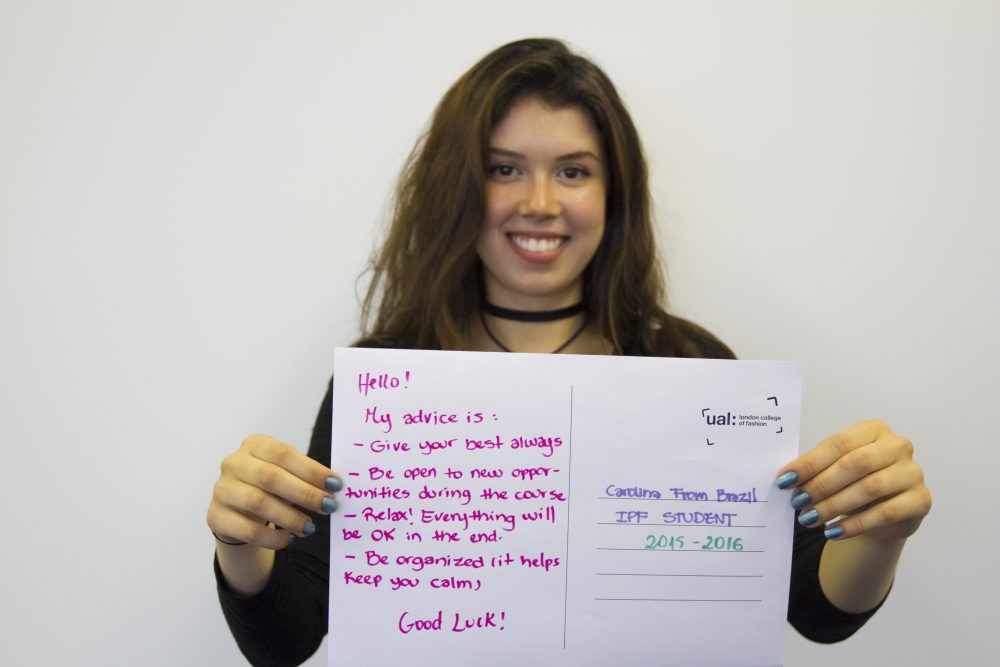 Hello!
My advice is :
- Give your best always
- Be open to new oppor-
tunities during the course
- Relax! Everything will
be OK in the end.
- Be organized (it helps
keep you calm)
Good Luck!
ual: london college
of fashion
Carolina From Brazil
IPF STUDENT
2015 - 2016